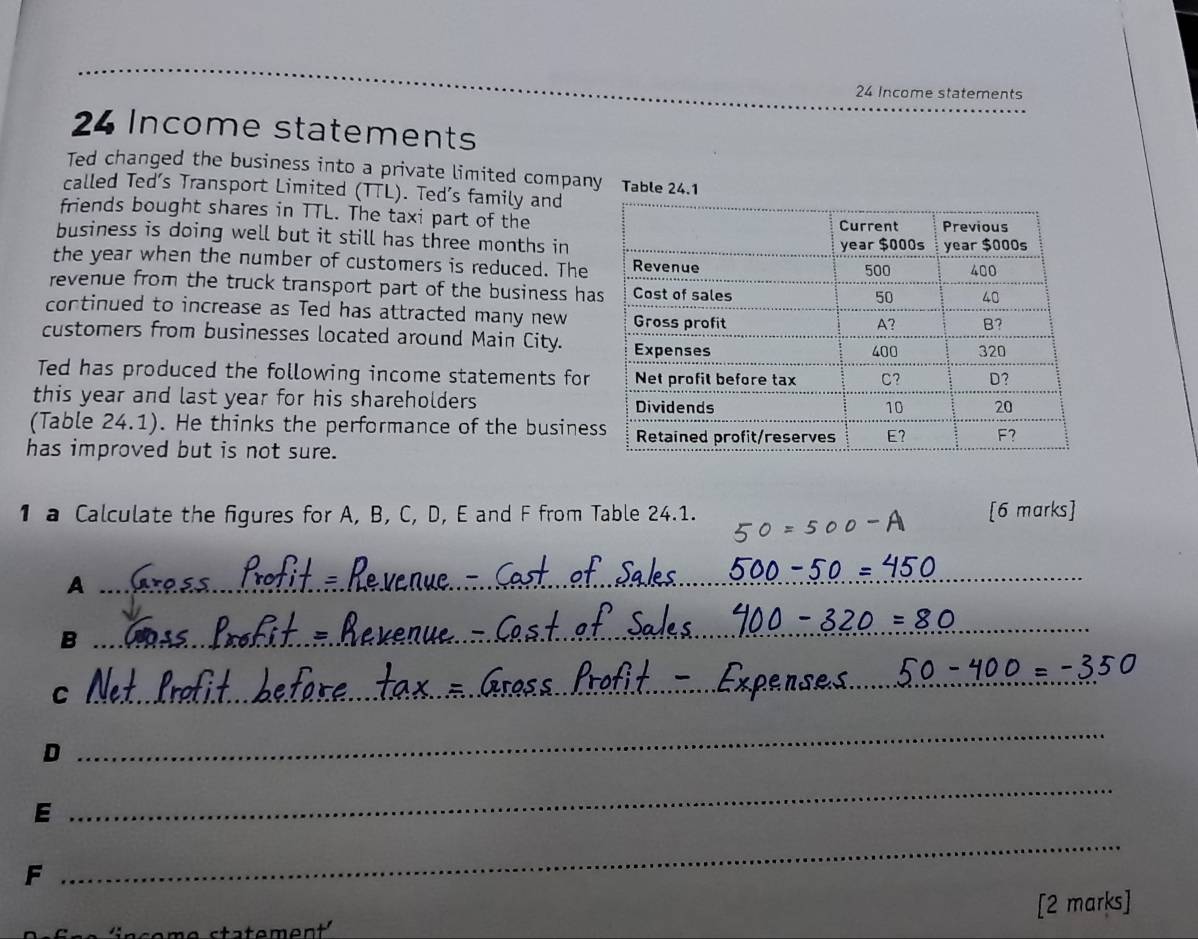 24 Income statements
24 Income statements
Ted changed the business into a private limited company
called Ted's Transport Limited (TTL). Ted's family and
friends bought shares in TTL. The taxi part of the
business is doing well but it still has three months in
the year when the number of customers is reduced. The
revenue from the truck transport part of the business has
continued to increase as Ted has attracted many new
customers from businesses located around Main City.
Ted has produced the following income statements for
this year and last year for his shareholders
(Table 24.1). He thinks the performance of the business
has improved but is not sure.
Table 24.1
Current year $000s Previous year $000s
Revenue 500 400
Cost of sales 50 40
Gross profit A? B?
Expenses 400 320
Net profit before tax C? D?
Dividends 10 20
Retained profit/reserves E? F?
1 a Calculate the figures for A, B, C, D, E and F from Table 24.1. [6 marks]
50 = 500 - A
A Gross Profit = Revenue - Cast of Sales 500 - 50 = 450
B Gross Profit = Revenue - Cost of Sales 400 - 320 = 80
C Net Profit before tax = Gross Profit - Expenses 50 - 400 = -350
D
E
F
[2 marks]
'income statement'